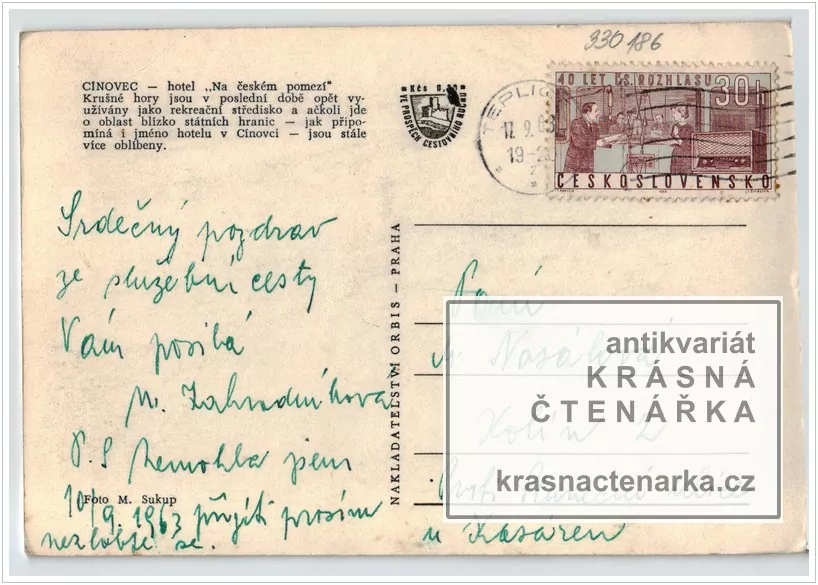 330 186
CÍNOVEC — hotel „Na českém pomezí"
Krušné hory jsou v poslední době opět vy-
užívány jako rekreační středisko a ačkoli jde
o oblast blízko státních hranic — jak připo-
míná i jméno hotelu v Cínovci — jsou stále
více oblíbeny.
Kčs 0,
VE PROSPĚCH CESTOVNÍHO RUCHU
TEPLIC
17.9.63
19-2
40 LET ČS. ROZHLASU
30 h
ČESKOSLOVENSKO
Srdečný pozdrav
ze služební cesty
Vám posílá
M. Zahradníková
P.S nemohla jsem
10/9. 1963 přijíti prosím
nezlobte se.
Foto M. Sukup
NAKLADATELSTVÍ ORBIS — PRAHA
Paní
Nosálová
Kolín 2
u Kasáren
antikvariát
KRÁSNÁ
ČTENÁŘKA
krasnactenarka.cz